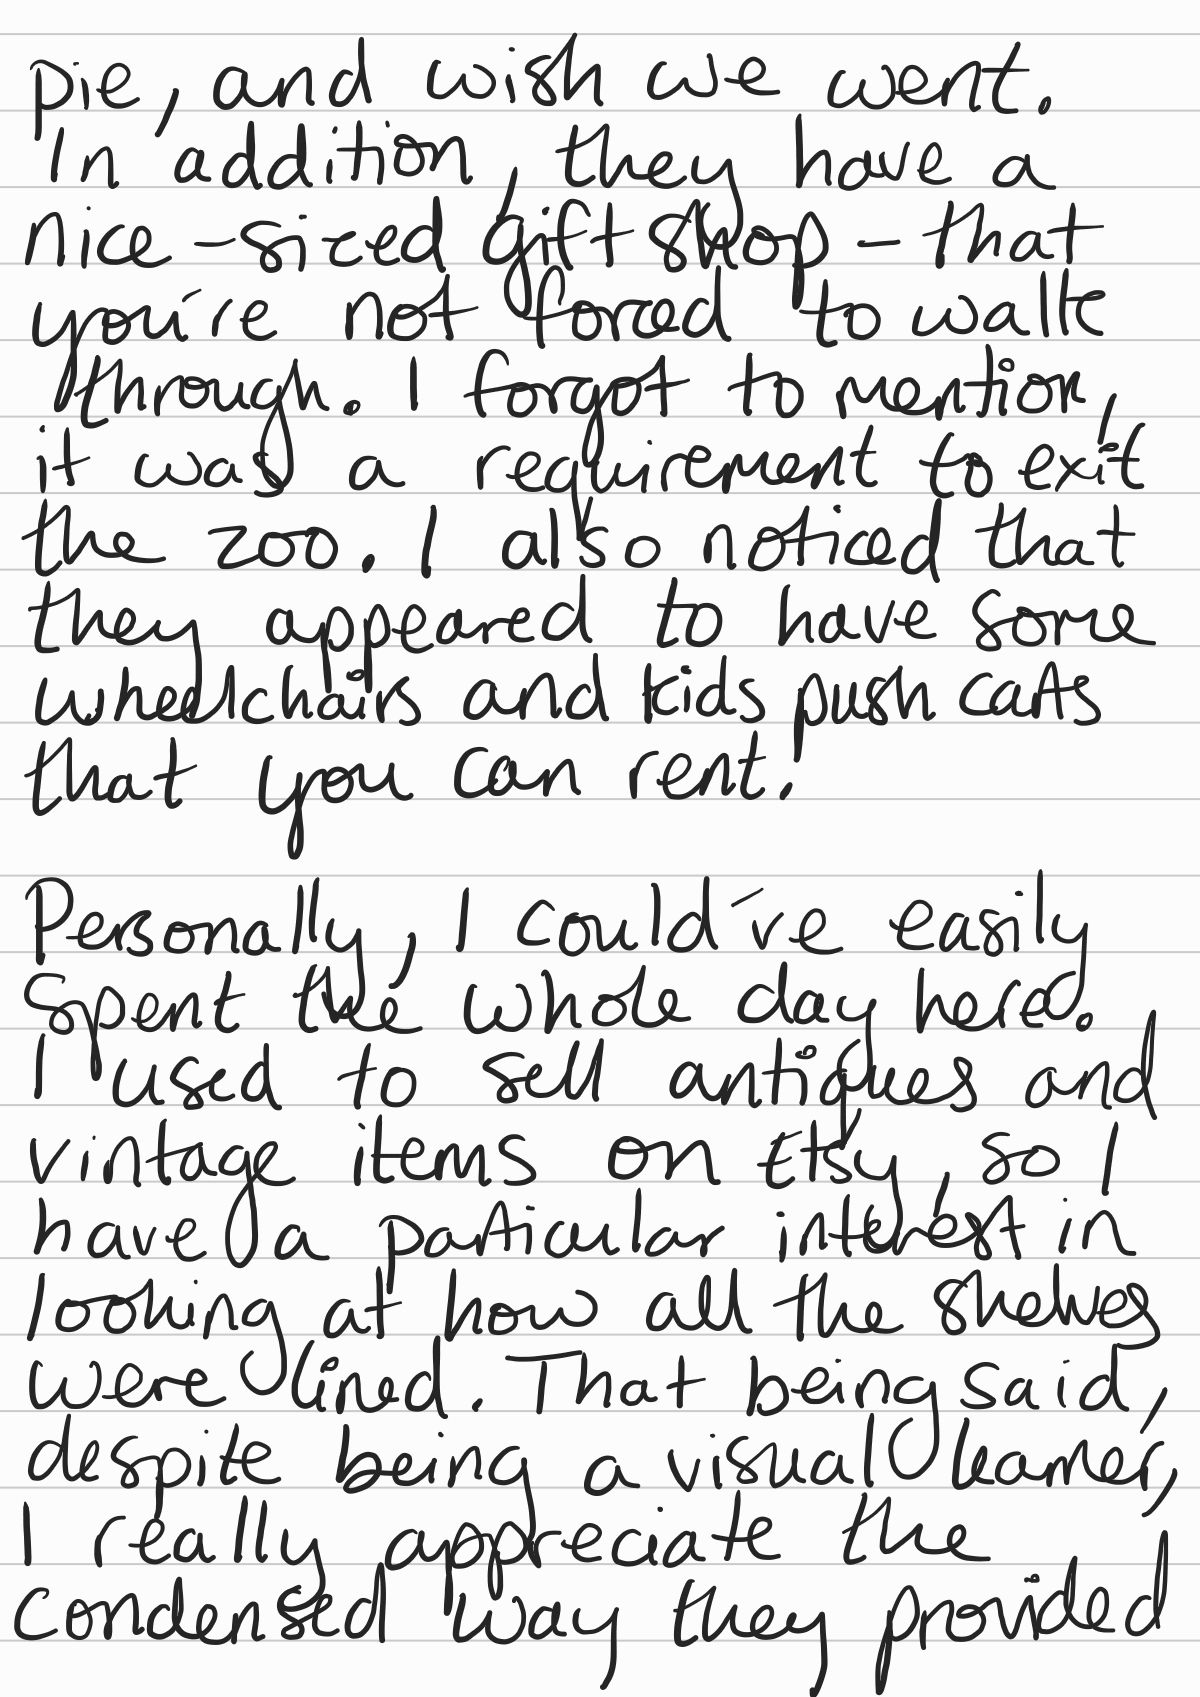 pie, and wish we went.
In addition, they have a
nice-sized gift shop - that
you're not forced to walk
through. I forgot to mention,
it was a requirement to exit
the zoo. I also noticed that
they appeared to have some
wheelchairs and kids push carts
that you can rent.
Personally, I could've easily
spent the whole day here.
I used to sell antiques and
vintage items on etsy, so I
have a particular interest in
looking at how all the shelves
were lined. That being said,
despite being a visual learner,
I really appreciate the
condensed way they provided